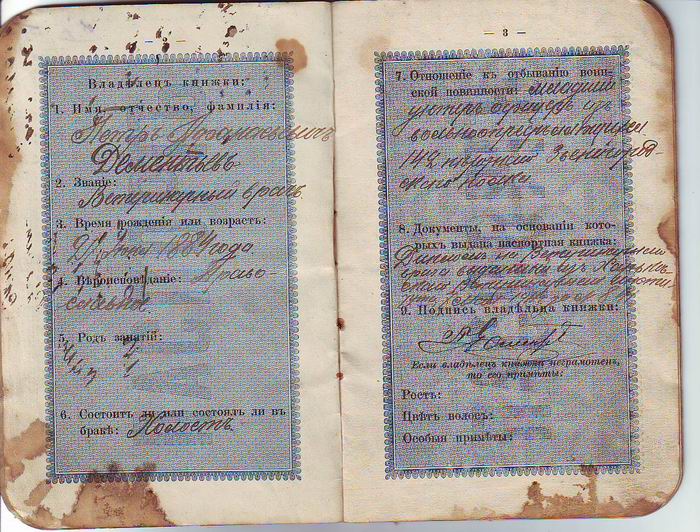 — 2 —
Владѣлецъ книжки:
1. Имя, отчество, фамилія:
Петръ
Дементьевъ
2. Званіе:
Ветеринарный врачъ
3. Время рожденія или возрастъ:
1884 года
4. Вѣроисповѣданіе: Право-
славный
5. Родъ занятій:
6. Состоитъ ли или состоялъ ли въ
бракѣ: Холостъ
— 3 —
7. Отношеніе къ отбыванію воин-
ской повинности: младшій
унтеръ офицеръ изъ
вольноопредѣляющихся
пѣхотнаго Звенигород-
скаго полка
8. Документы, на основаніи кото-
рыхъ выдана паспортная книжка:
Дипломъ на Ветеринарнаго
врача выданный изъ Харьков-
скаго Ветеринарнаго Инсти-
9. Подпись владѣльца книжки:
Если владѣлецъ книжки неграмотенъ,
то его примѣты:
Ростъ:
Цвѣтъ волосъ:
Особыя примѣты: